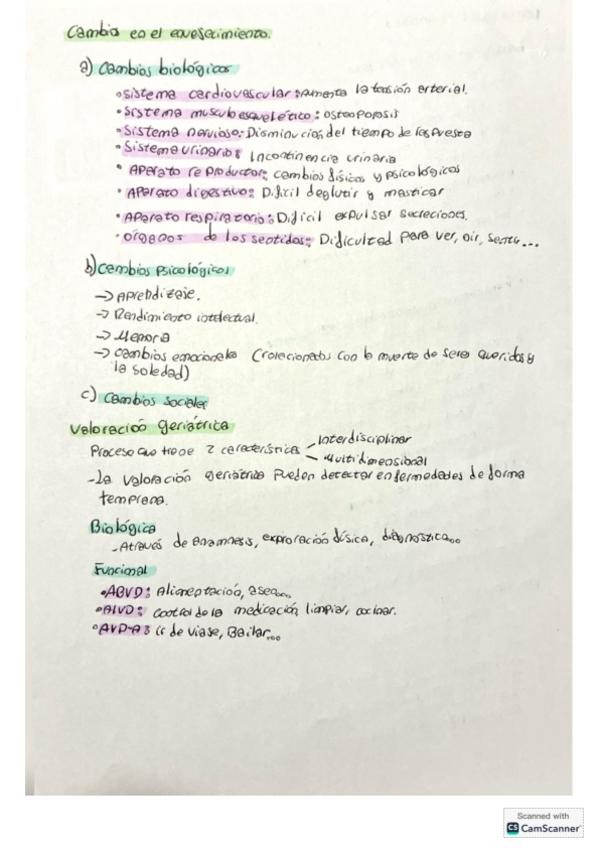 Cambio en el envejecimiento.
a) Cambios biológicos
• Sistema cardiovascular: aumenta la tensión arterial.
• Sistema musculoesquelético: osteoporosis
• Sistema nervioso: Disminución del tiempo de respuesta
• Sistema urinario: Incontinencia urinaria
• Aparato reproductor: cambios físicos y psicológicos
• Aparato digestivo: Dificil deglutir y masticar
• Aparato respiratorio: Dificil expulsar secreciones.
• órganos de los sentidos: Dificultad para ver, oir, sentir...
b) Cambios Psicológicos
→ Aprendizaje.
→ Rendimiento intelectual.
→ Memoria
→ Cambios emocionales (relacionados con la muerte de seres queridos y
la soledad)
c) Cambios sociales
Valoración geriátrica
Proceso que tiene 2 características - Interdisciplinar
- Multidimensional
- La valoración geriátrica pueden detectar enfermedades de forma
temprana.
Biológica
- Através de anamnesis, exploración física, diagnostica...
Funcional
• ABVD: Alimentación, aseo...
• AIVD: control de la medicación, limpiar, cocinar.
• AVD-A: ir de viaje, Bailar...
Scanned with
CS CamScanner